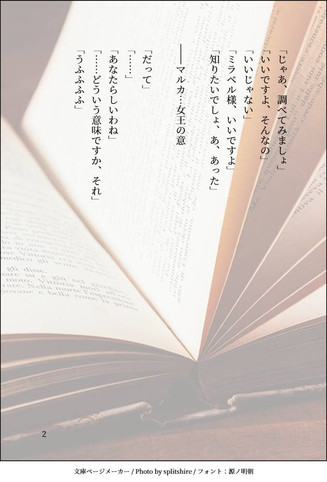 「じゃあ、調べてみましょ」
「いいですよ、そんなの」
「いいじゃない」
「ミラベル様、いいですよ」
「知りたいでしょ、あ、あった」
――マルカ…女王の意
「だって」
「……」
「あなたらしいわね」
「……どういう意味ですか、それ」
「うふふふふ」
2
文庫ページメーカー / Photo by splitshire / フォント：源ノ明朝